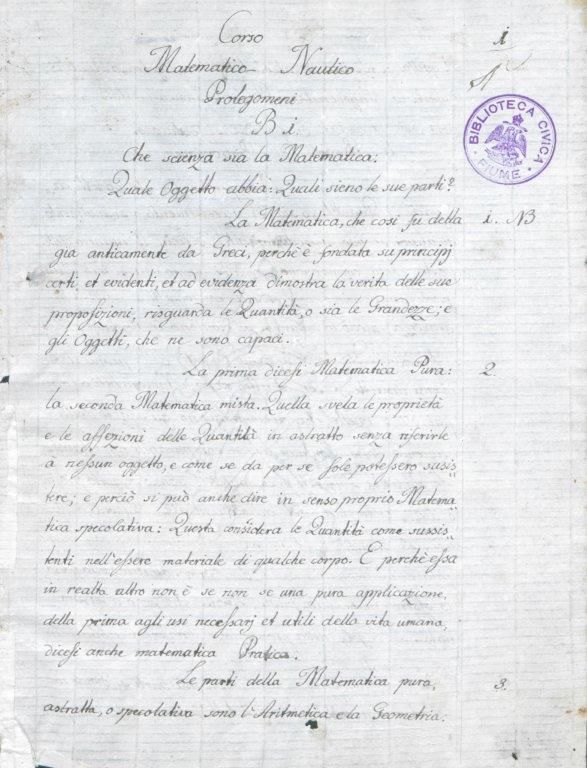 Corso
1
Matematico Nautico
Prolegomeni
B i.
BIBLIOTECA CIVICA
FIUME
Che scienza sia la Matematica:
Quale Oggetto abbia: Quali sieno le sue parti?
La Matematica, che così fu della
1. NB
gia anticamente da Greci, perchè è fondata su principj
certi, et evidenti, et ad evidenza dimostra la verita delle sue
proposizioni, risguarda le Quantità, o sia le Grandezze; e
gli Oggetti, che ne sono capaci.
La prima dicesi Matematica Pura:
2.
la seconda Matematica mista. Quella svela le proprietà
e le affezioni delle Quantità in astratto senza riferirle
à nessun oggetto, e come se da per se sole potessero susis=
tere; e perciò si può anche dire in senso proprio Matema=
tica specolativa: Questa considera le Quantità come sussis=
tenti nell'essere materiale di qualche corpo. E perchè essa
in realta altro non è se non se una pura applicazione,
della prima agli usi necessarj et utili della vita umana,
dicesi anche matematica Pratica.
Le parti della Matematica pura,
3.
astratta, o specolativa sono l'Aritmetica e la Geometria: